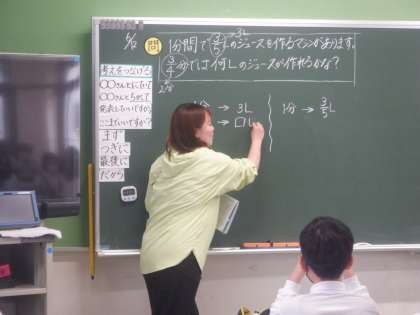 5/12
問 1分間で3/5Lのジュースを作るマシンがあります。
→3L
3/4分では何Lのジュースが作れるかな？
2分
考えをつなげる
○○さんとにていて
○○さんとちがって
発表していいですか?
ここまでいいですか?
まず
つぎに
最後に
だから
1分 → 3L
→ □L
1分 → 3/5L